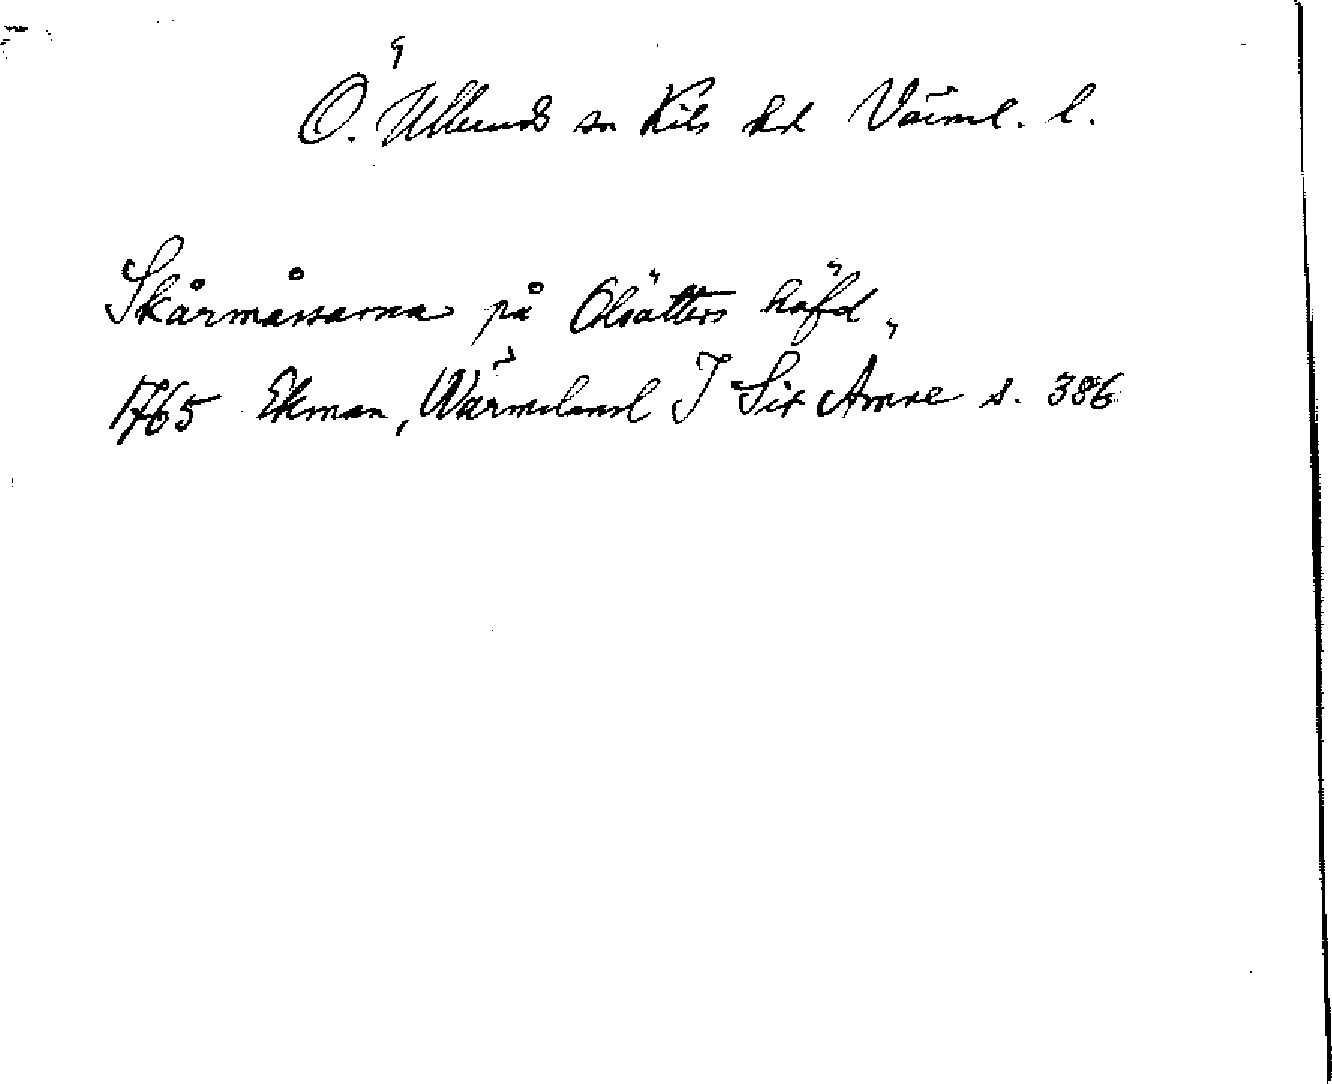 Ö. Ulleruds sn Kils hd Värml. l.
Skårmåssarna på Olsätters häfd,
1765 Ekman, Wärmeland I Six Amne s. 386